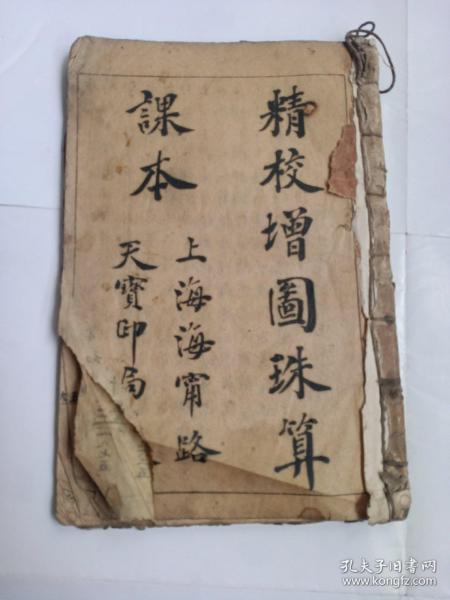 精校增圖珠算
課本
上海海甯路
天寶印局
孔夫子旧书网
www.kongfz.com